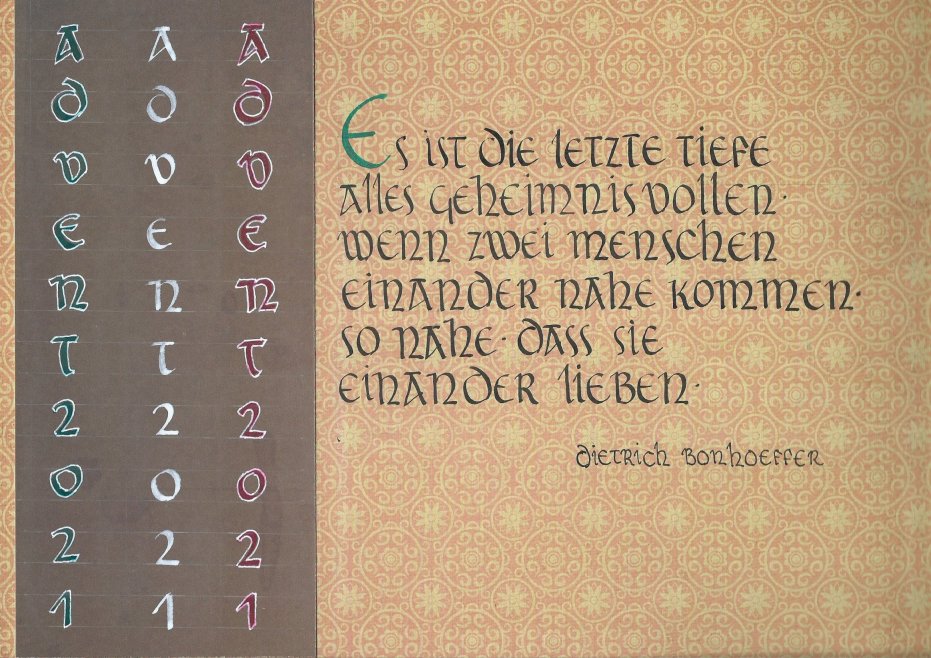 A A A
D D D
V V V
E E E
N N N
T T T
2 2 2
0 0 0
2 2 2
1 1 1
Es ist die letzte Tiefe
alles Geheimnisvollen·
wenn zwei Menschen
einander nahe kommen·
so nahe· dass sie
einander lieben·
Dietrich Bonhoeffer